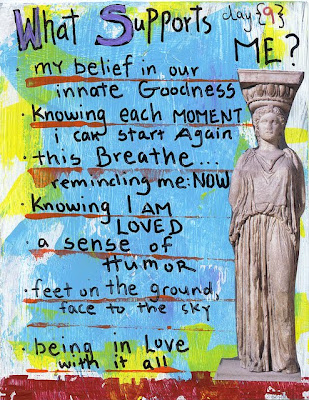 What Supports day {9}
ME?
· my belief in our
innate Goodness
· Knowing each MOMENT
i can start Again
· this Breathe...
reminding me: NOW
· Knowing I AM
LOVED
· a sense of
HUMOR
· feet on the ground,
face to the sky
· being in Love
with it all